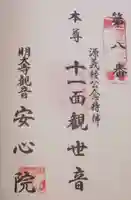 第八番
源義経公念持佛
本尊
十一面觀世音
明大寺觀音
安心院